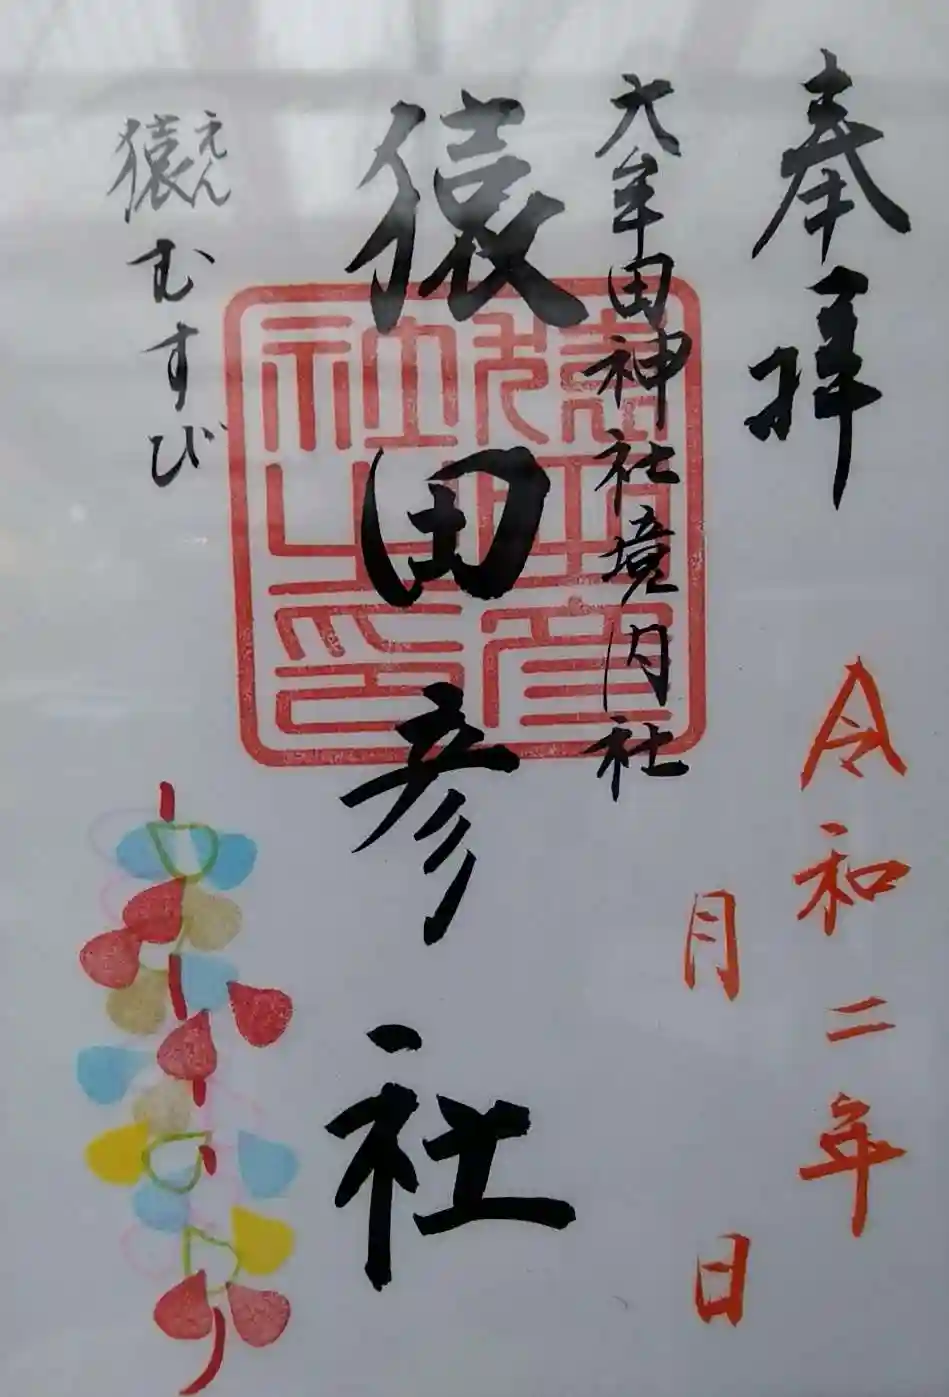 奉拝
令和二年
月　日
大牟田神社境内社
猿田彦社
猿田彦
社之印
猿むすび
えん